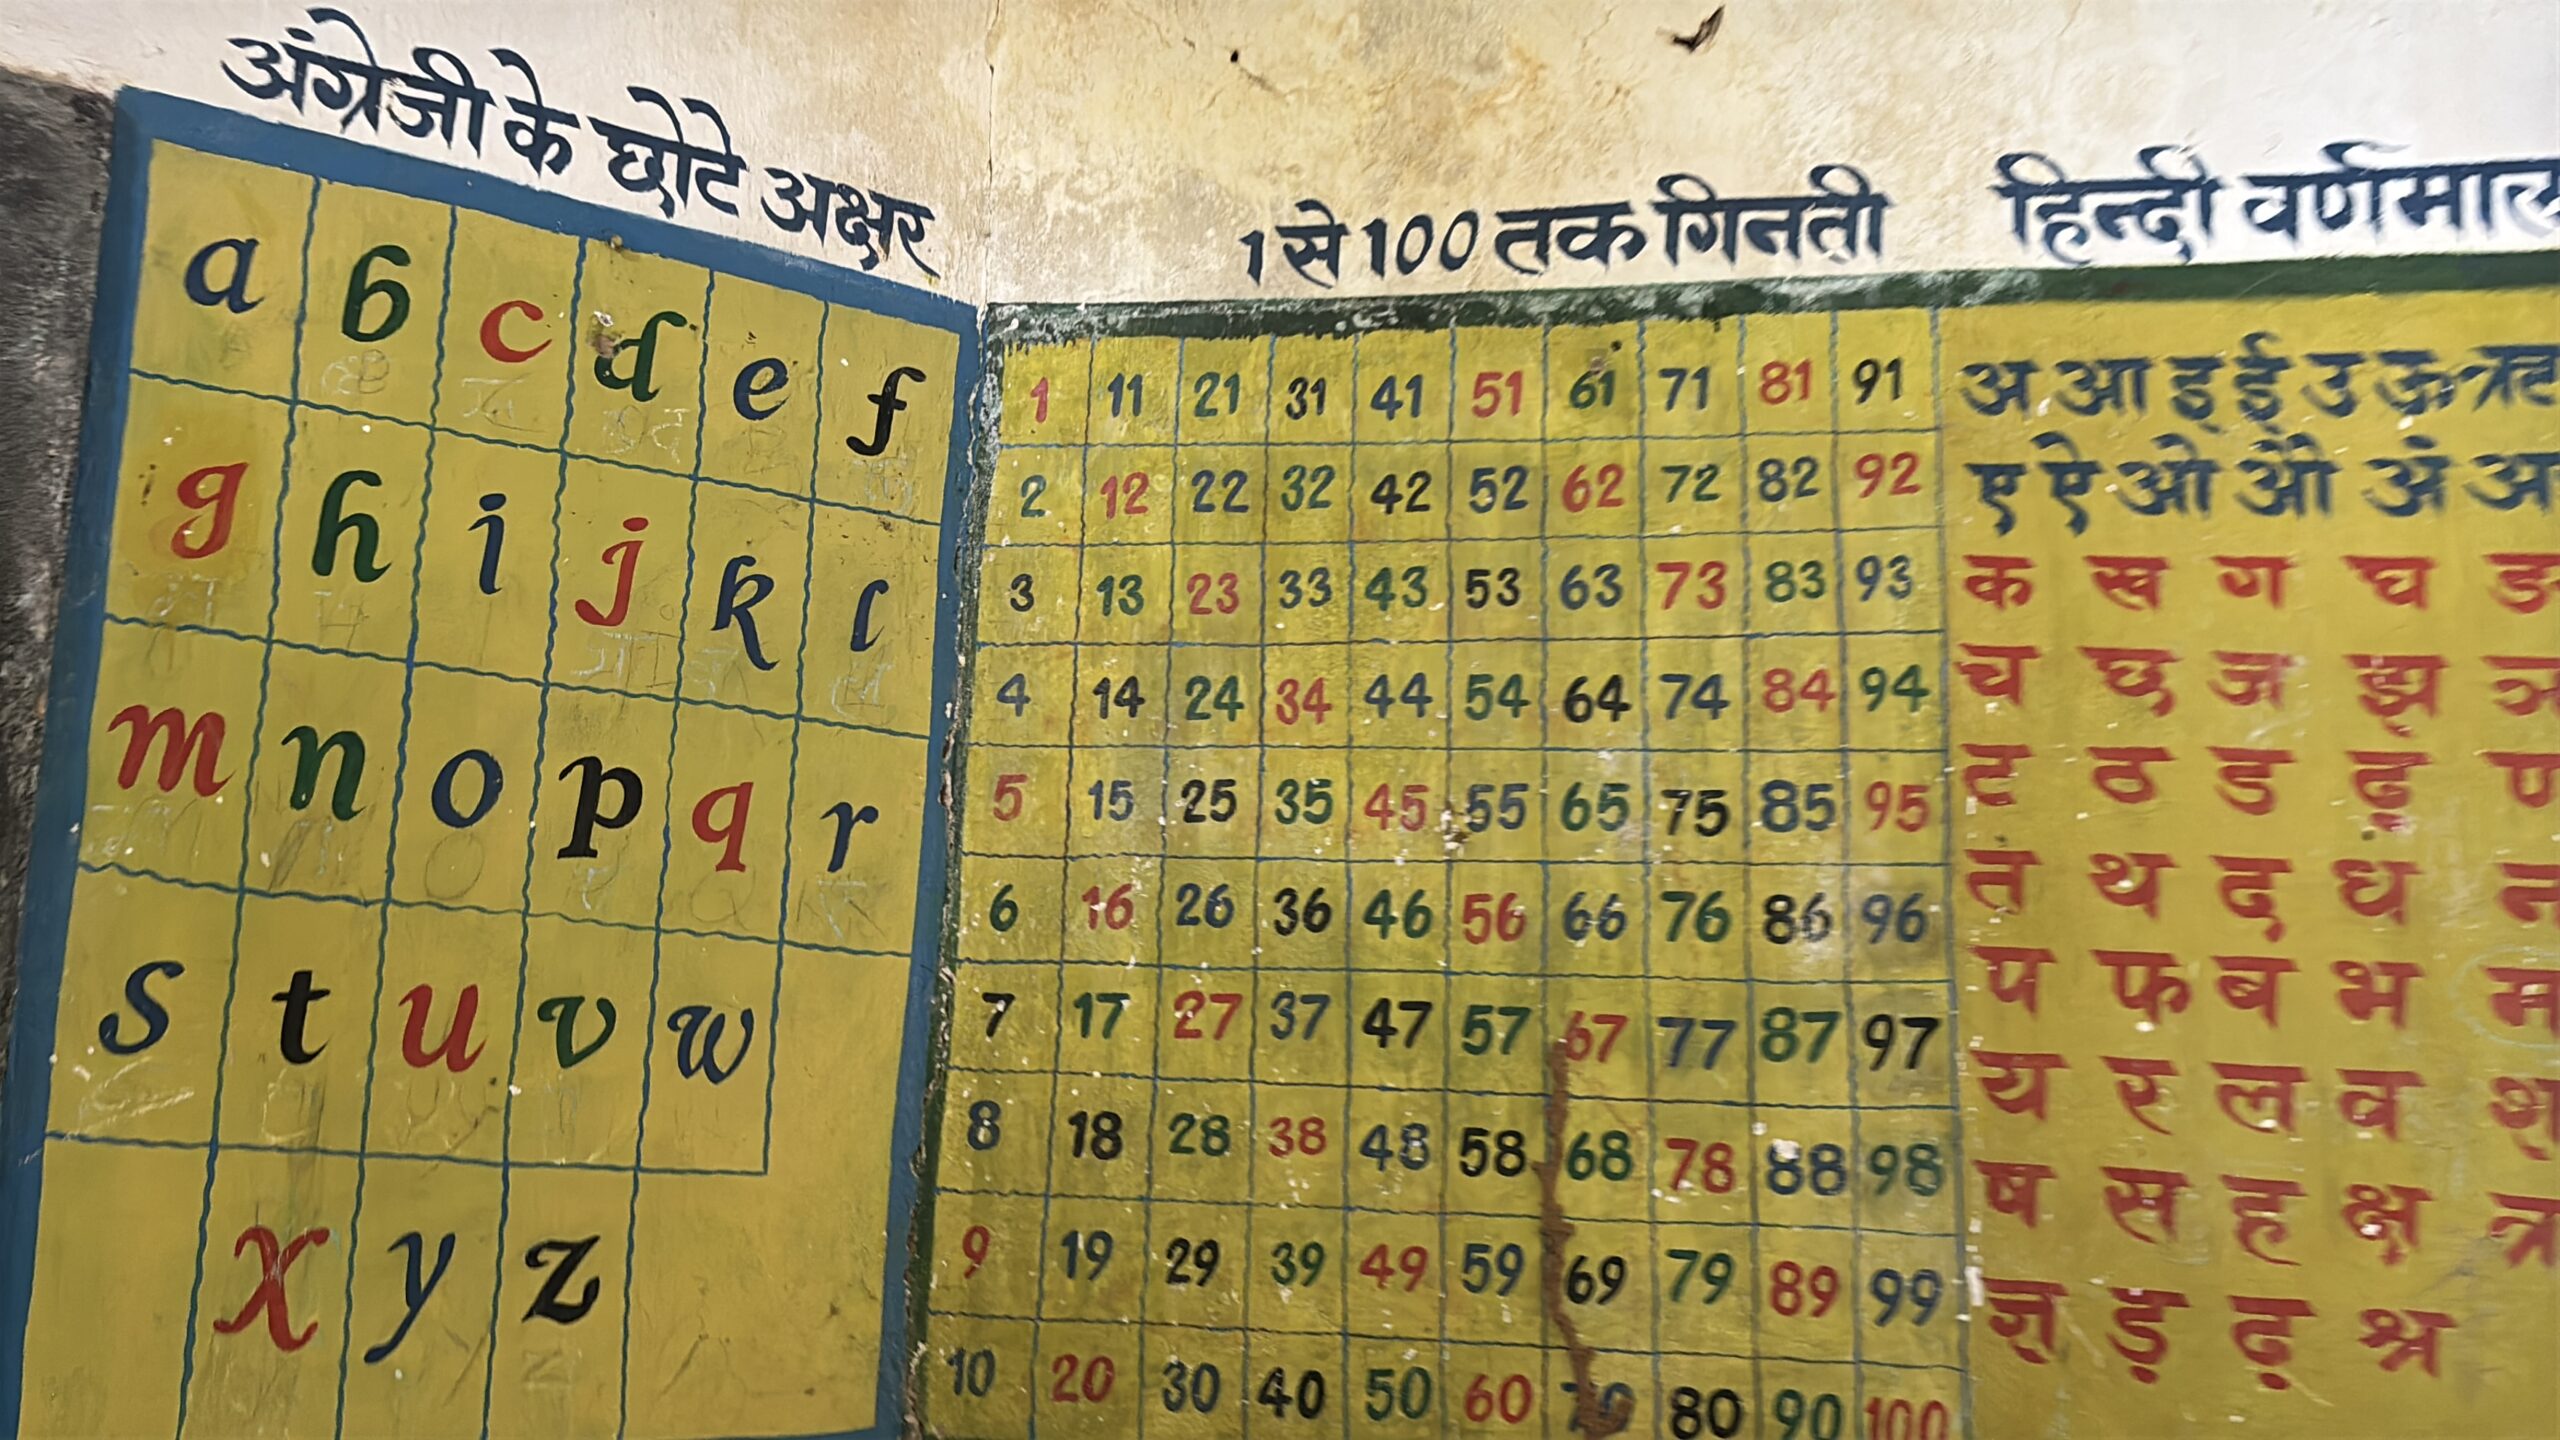 अंग्रेजी के छोटे अक्षर
a b c d e f
g h i j k l
m n o p q r
s t u v w
x y z
1 से 100 तक गिनती
1 11 21 31 41 51 61 71 81 91
2 12 22 32 42 52 62 72 82 92
3 13 23 33 43 53 63 73 83 93
4 14 24 34 44 54 64 74 84 94
5 15 25 35 45 55 65 75 85 95
6 16 26 36 46 56 66 76 86 96
7 17 27 37 47 57 67 77 87 97
8 18 28 38 48 58 68 78 88 98
9 19 29 39 49 59 69 79 89 99
10 20 30 40 50 60 70 80 90 100
हिन्दी
अ आ इ ई उ ऊ ऋ
ए ऐ ओ औ अं
क ख ग घ ङ
च छ ज झ
ट ठ ड ढ़ ण
त थ द ध न
प फ ब भ म
य र ल व श
ष स ह क्ष त्र
ज्ञ ड़ ढ़ श्र